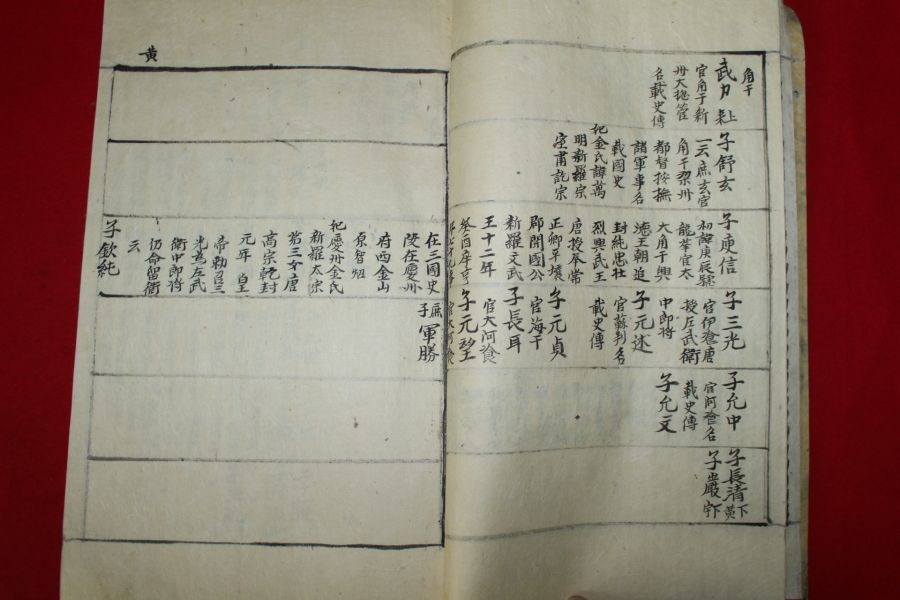 角干
武力
官角干新
州大揔管
名載史傳
子舒玄
一云庶玄官
角干梁州
都督按撫
諸軍事名
載國史
配金氏諱萬
明新羅宗
室肅訖宗
子庾信
初諱庚辰號
龍華官太
大角干興
德王朝追
封純忠壮
烈興武王
唐授奉常
正卿平壤
郡開國公
新羅文武
王十二年
在三國史
陵在慶州
府西金山
原智炤
配慶州金氏
新羅太宗
第三女唐
高宗乾封
元年皇
帝勅召三
光爲左武
衛中郎將
仍命留衛
云
子欽純
子三光
官伊飡唐
授左武衛
中郎將
子元述
官蘇判名
載史傳
子元貞
官海干
子長耳
官大阿飡
子元望
官大阿飡
庶子軍勝
子允中
官阿飡名
載史傳
子允文
子長清
下黃
子巖
下宇
黃